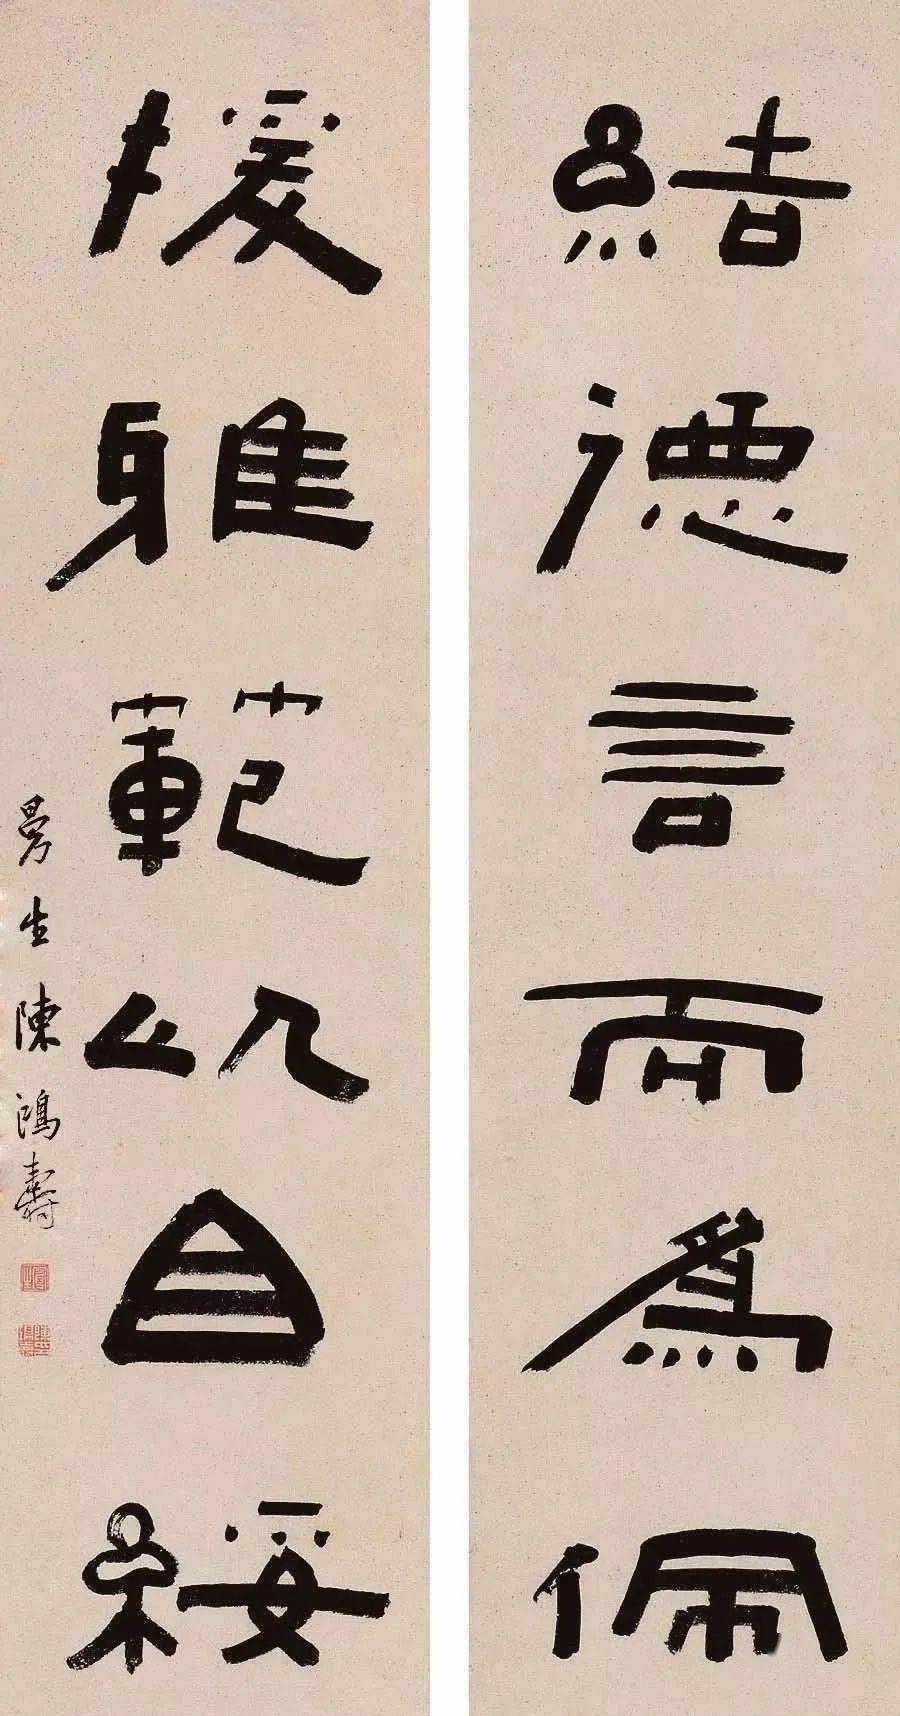 結德言而為佩
援雅範以自綏
曼生陳鴻壽